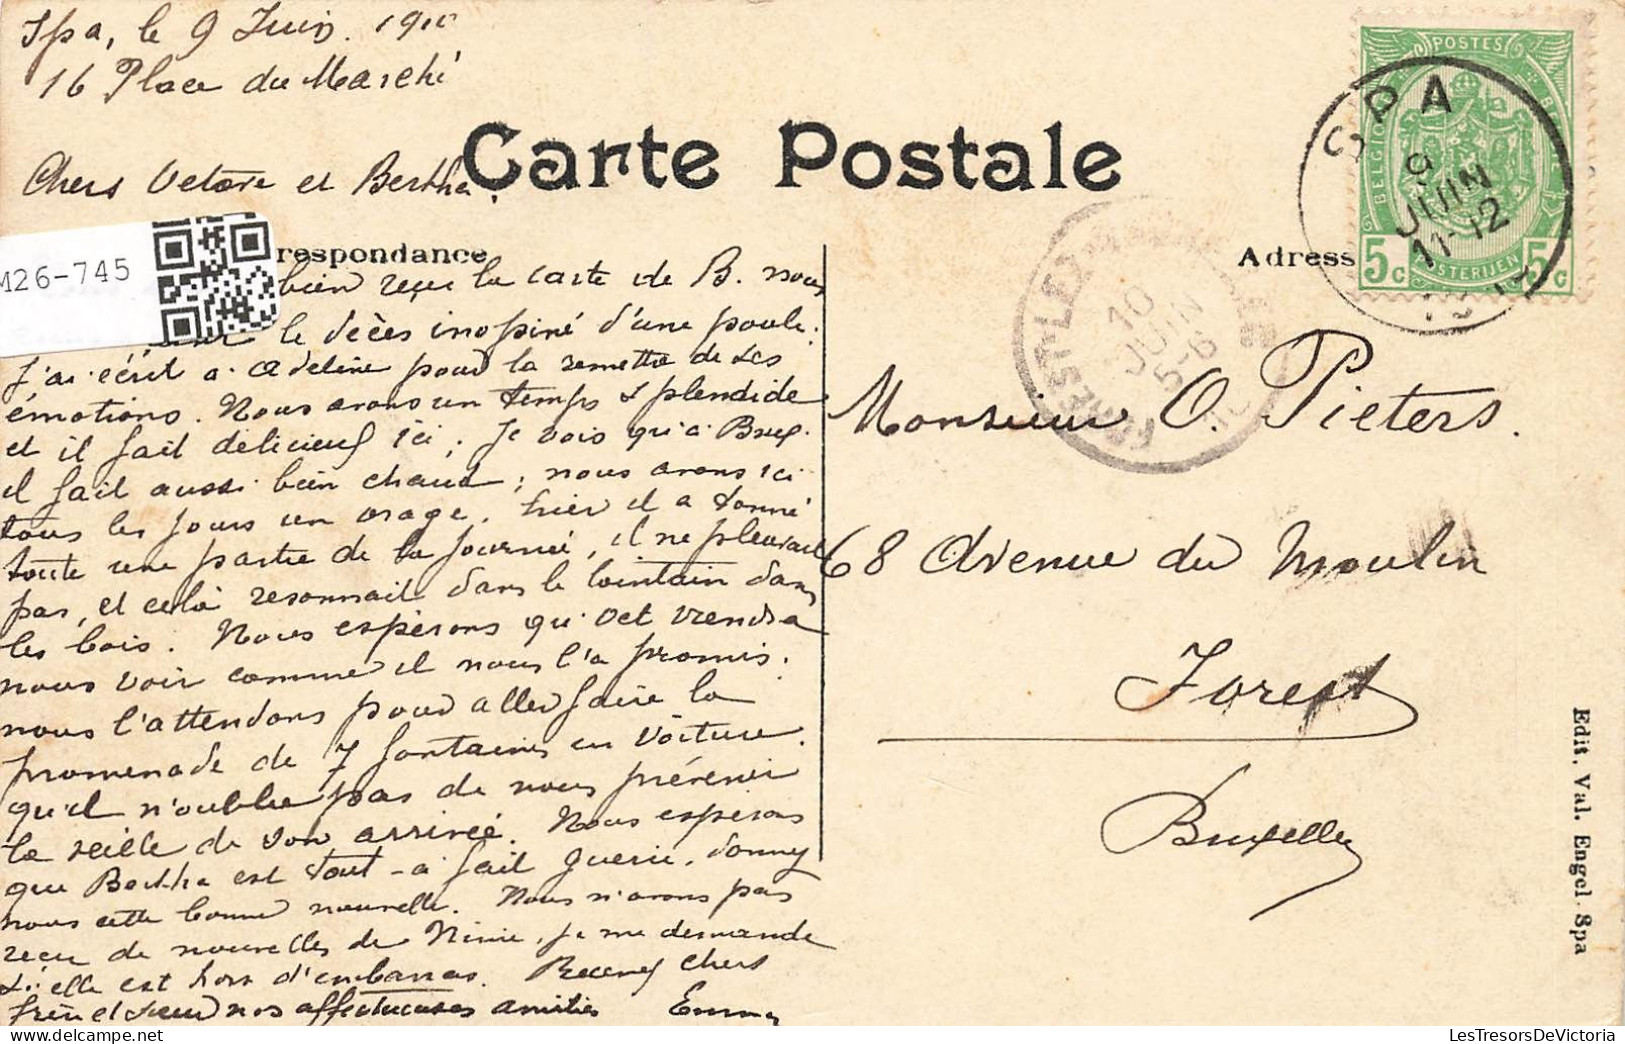 Spa, le 9 Juin 1910
16 Place du Marché
Carte Postale
Chers Octave et Bertha
M26-745
respondance
Adress
POSTES
BELGIQUE
5c
5c
SPA
9
JUIN
11-12
10
JUIN
5-6
bien reçu la carte de B. nous
le décès inopiné d'une poule.
J'ai écrit a Adeline pour la remettre de ses
émotions. Nous avons un temps splendide
et il fait délicieux ici; Je vois qu'a Brux.
il fait aussi bien chaud; nous avons ici
tous les jours un orage. hier il a tonné
toute une partie de la journée, il ne pleuvait
pas, et cela résonnait dans le lointain dans
les bois. Nous espérons qu'Oct viendra
nous voir comme il nous l'a promis.
nous l'attendons pour aller faire la
promenade de 7 fontaines en voiture.
qu'il n'oublie pas de nous prévenir
la veille de son arrivée. Nous espérons
que Bertha est tout-a fait guerie. donnez
nous cette bonne nouvelle. Nous n'avons pas
reçu de nouvelles de Ninie, je me demande
si elle est hors d'embarras. Recevez chers
frère et sœur nos affectueuses amitiés Emma
Monsieur O. Pieters.
68 Avenue du Moulin
Forest
Bruxelles
Edit. Val. Engel. Spa
LesTresorsDeVictoria.com